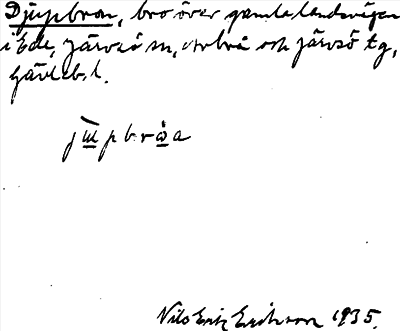 Djupbron, bro över gamla landsvägen
i Ede, Järvsö sn, Arbrå och Järvsö tg,
Gävleb. l.
jupbrøa
Nils Erik Erikson 1935.